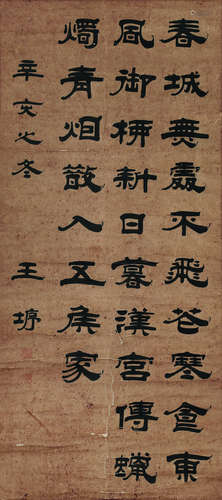 春城無處不飛花寒食東
風御柳斜日暮漢宮傳蠟
燭青烟散入五侯家
辛亥之冬 王垿